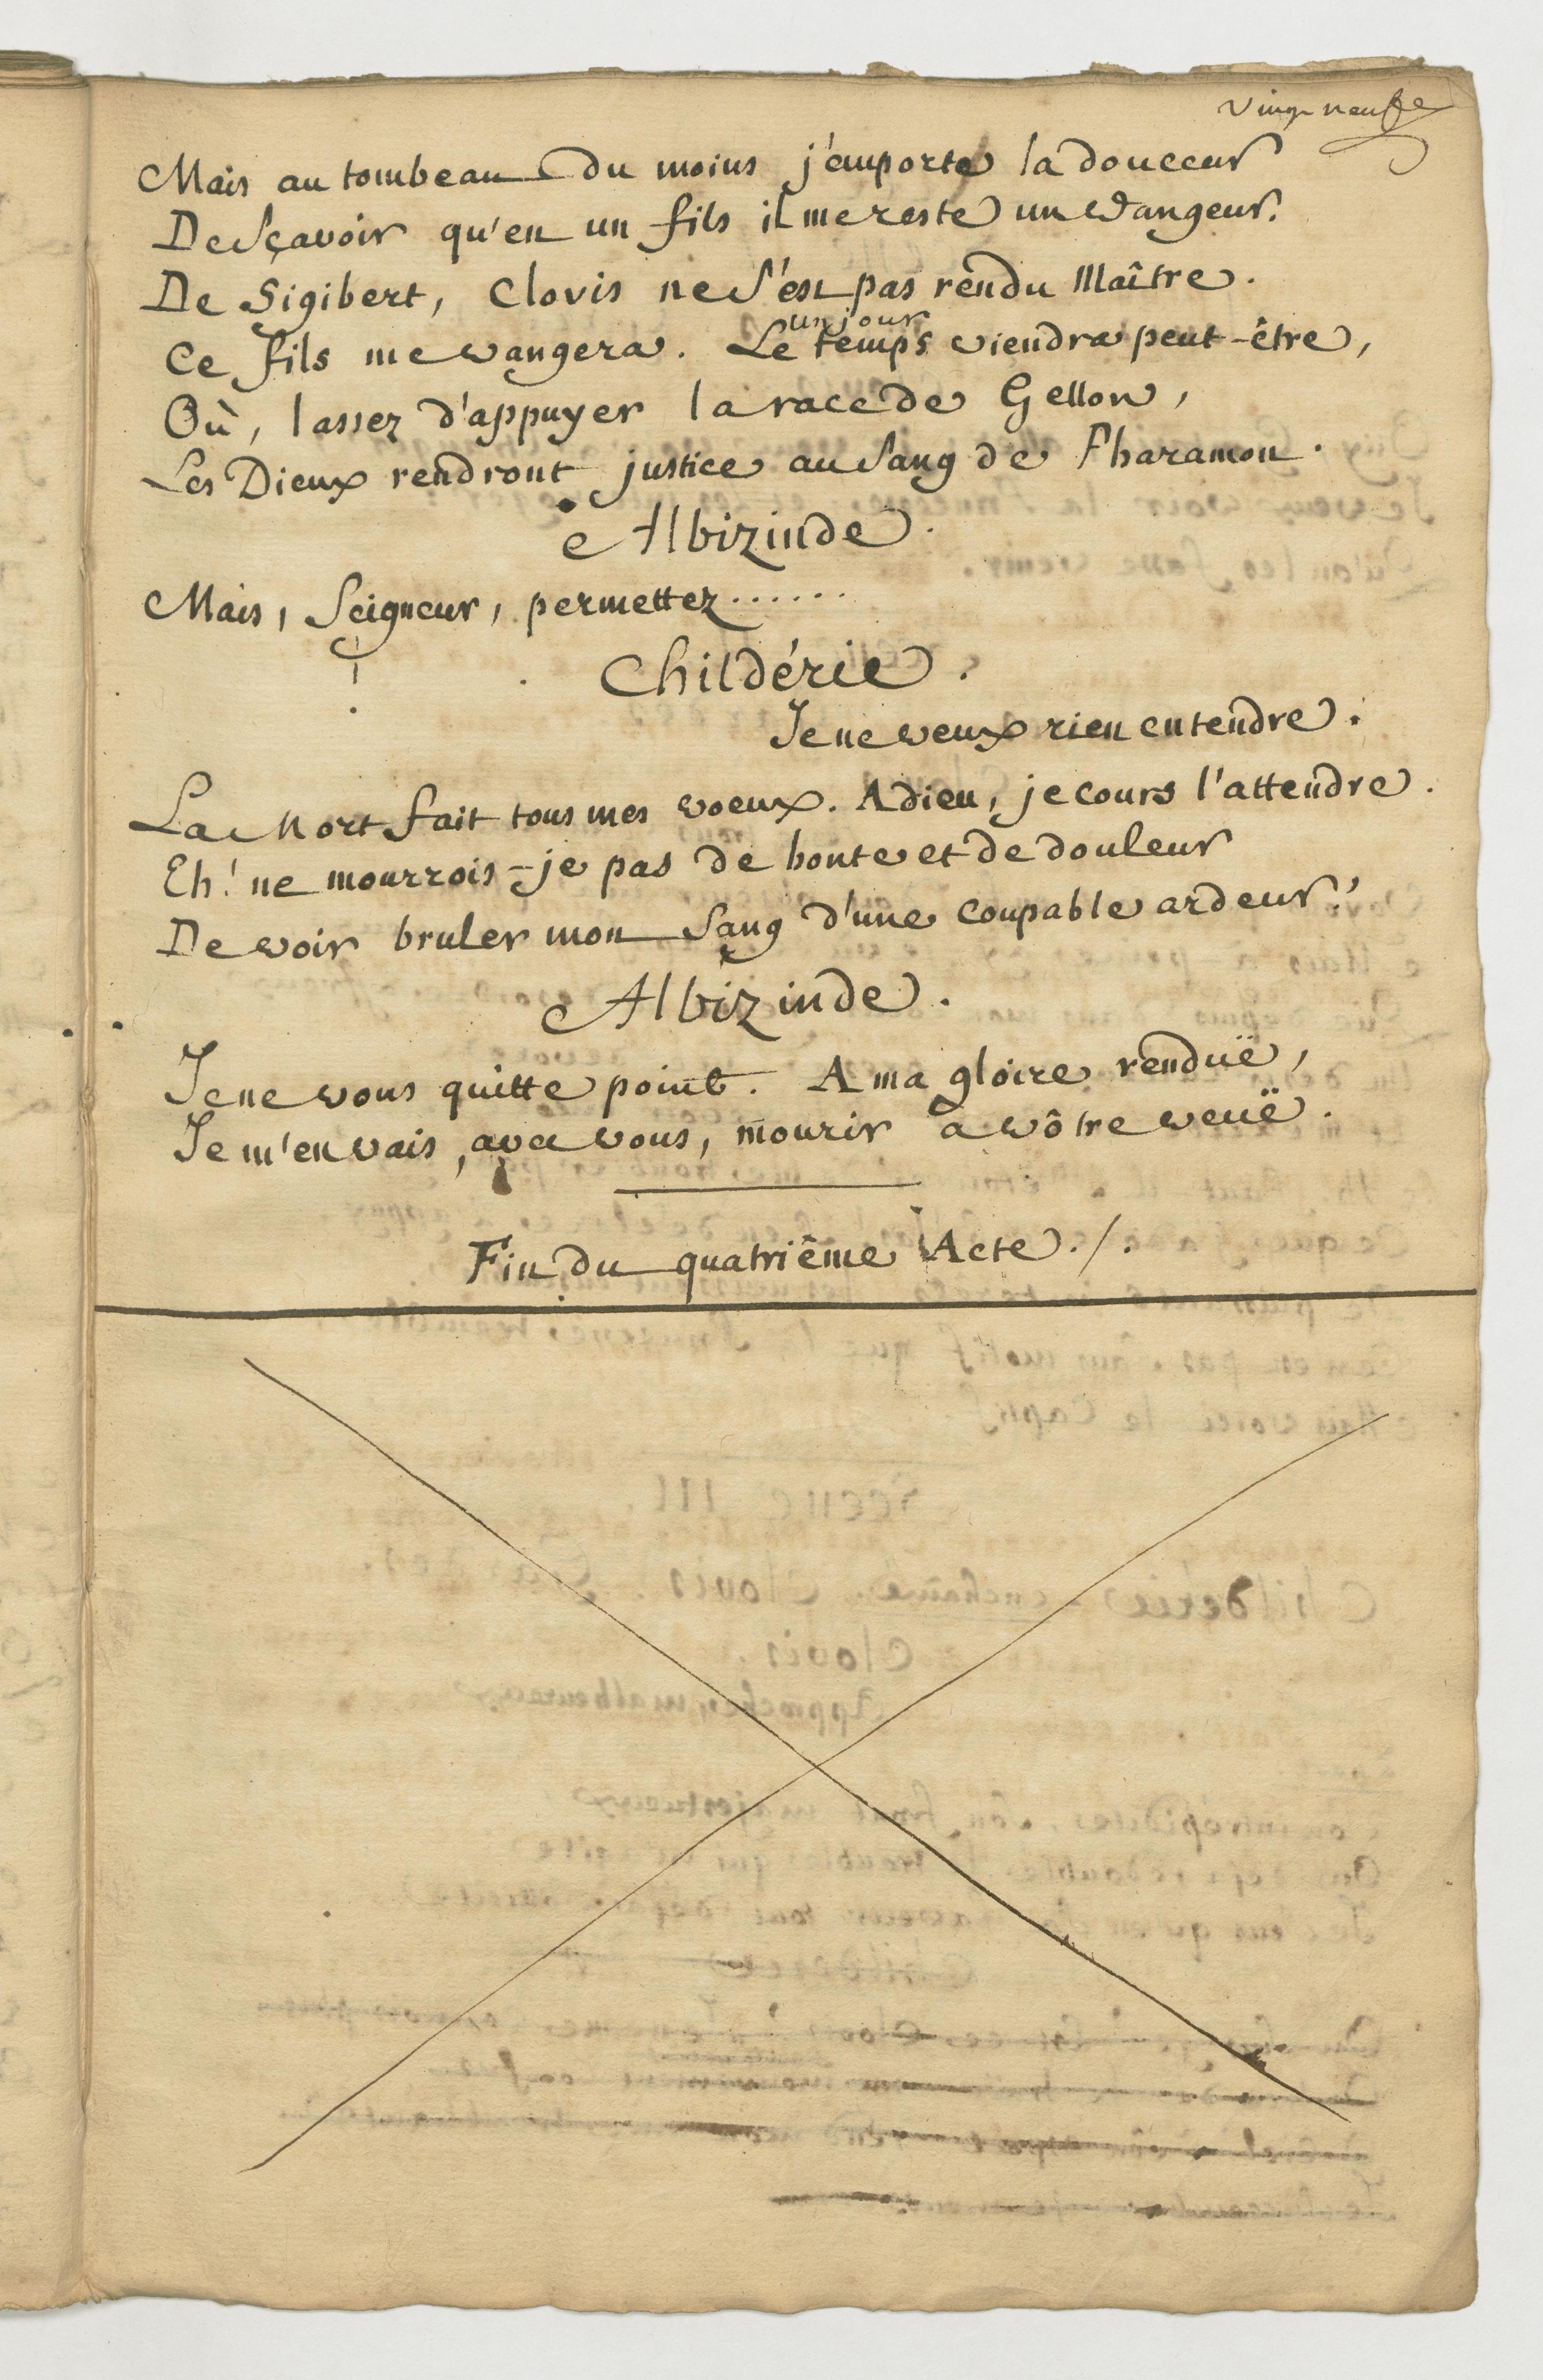 Vingt neufe
Mais au tombeau du moins j'emporte la douceur
De sçavoir qu'en un fils il me reste un vangeur.
De Sigibert, Clovis ne s'est pas rendu Maître.
un jour
Ce fils me vangera. Le temps viendra peut-être,
Où, lassez d'appuyer la race de Gellon,
Les Dieux rendront justice au sang de Pharamon.
Albizinde.
Mais, Seigneur, permettez......
Childéric.
Je ne veux rien entendre.
La Mort fait tous mes voeux. Adieu, je cours l'attendre.
Eh! ne mourrois-je pas de honte et de douleur
De voir bruler mon sang d'une coupable ardeur!
Albizinde.
Je ne vous quitte point. A ma gloire renduë,
Je m'en vais, avec vous, mourir à vôtre veuë.
Fin du quatriême Acte./.